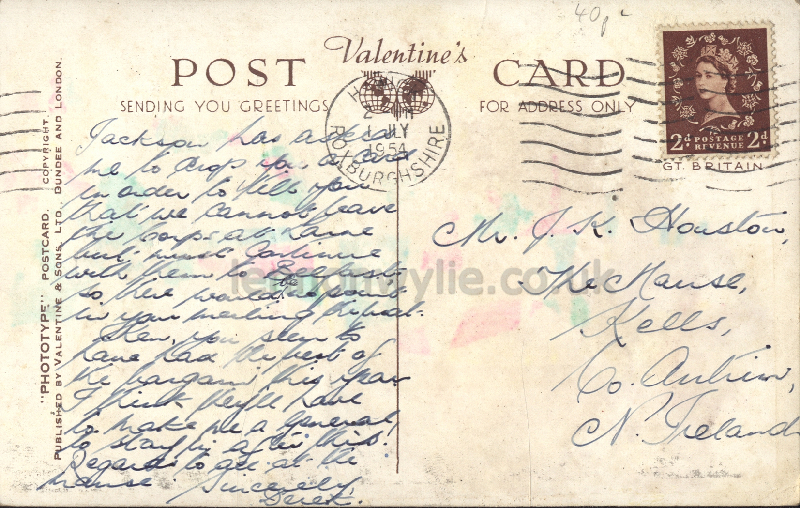 40p
Valentine's
POST CARD
SENDING YOU GREETINGS
FOR ADDRESS ONLY
H
2
1 JLY
1954
ROXBURGHSHIRE
2d POSTAGE REVENUE 2d
GT. BRITAIN
"PHOTOTYPE" POSTCARD. COPYRIGHT.
PUBLISHED BY VALENTINE & SONS, LTD., DUNDEE AND LONDON.
Jackson has asked
me to drop you a card
in order to tell you
that we cannot leave
the corps at Larne
but must continue
with them to Belfast
so there would be no point
in your meeting the boat.
Ken, you seem to
have had the best of
the bargain this year
I think they'll have
to make me a general
to stay in after this.
Regards to all at the
manse. Sincerely,
Derek.
Mr. J. K. Houston,
The Manse,
Kells,
Co. Antrim,
N. Ireland
lennonwylie.co.uk